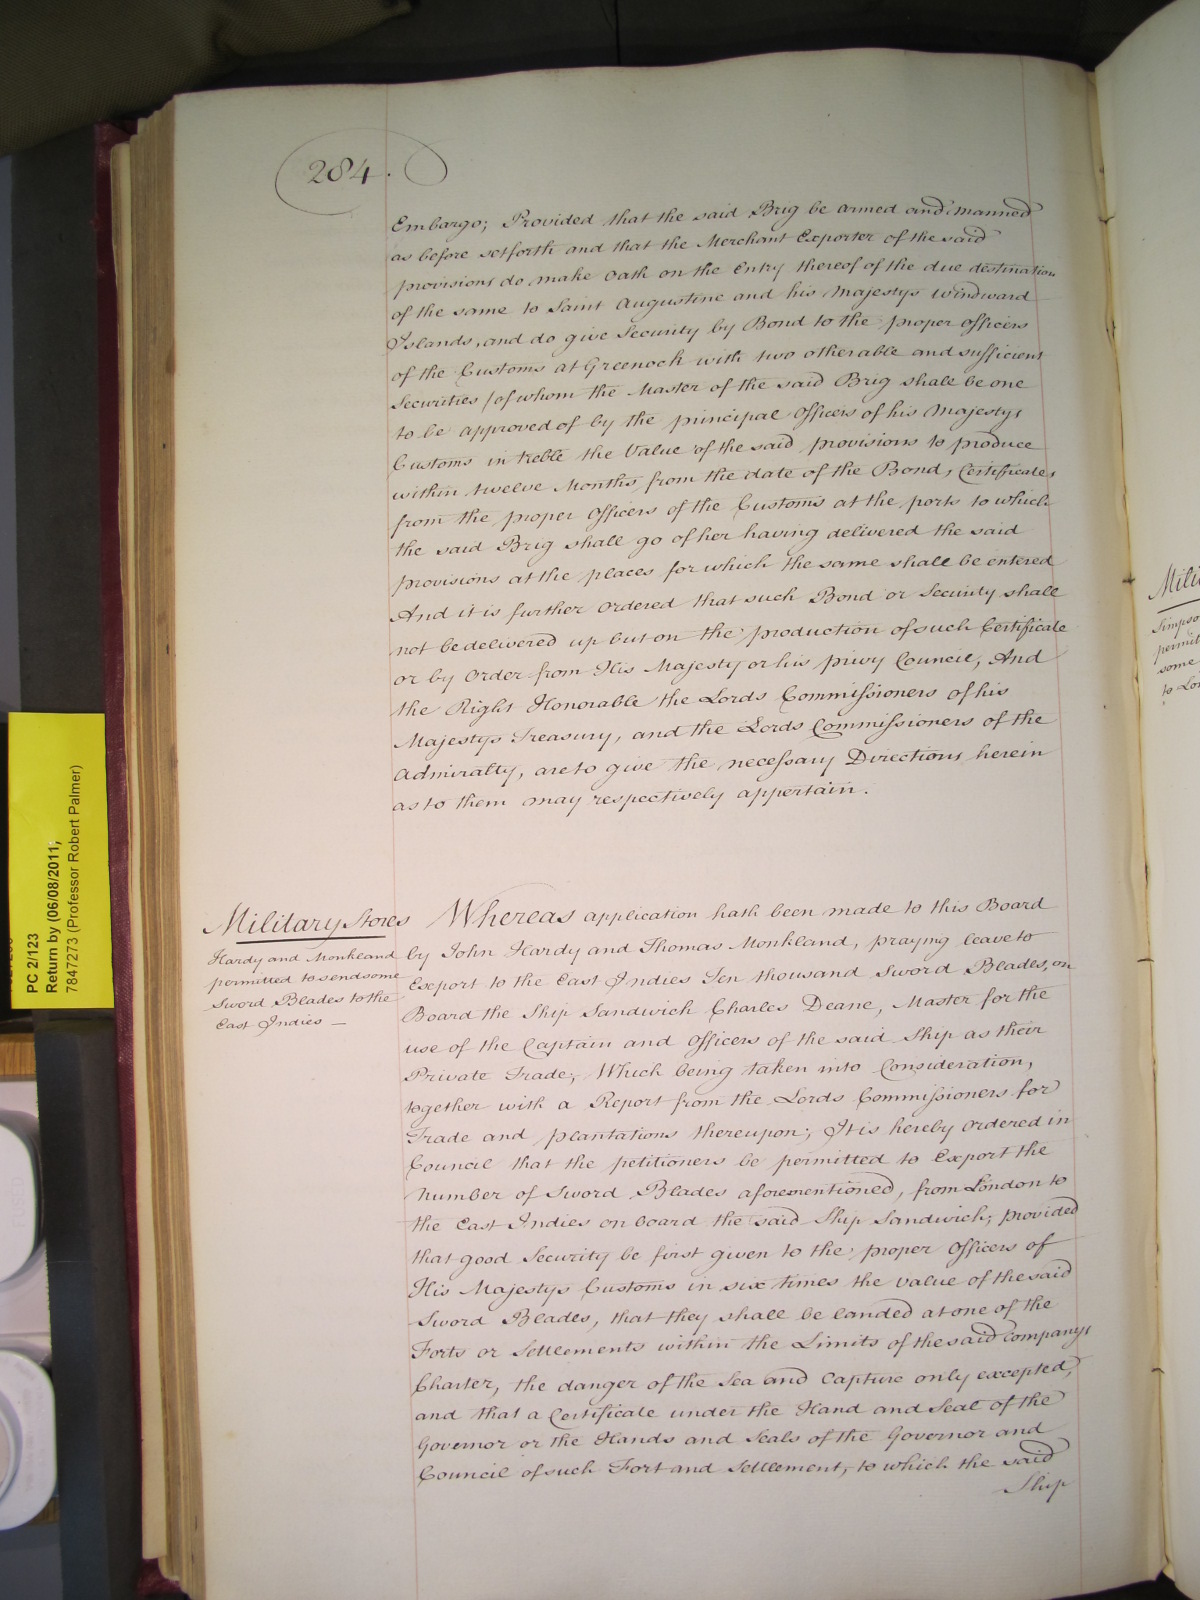 284.
Embargo; Provided that the said Brig be armed and manned
as before setforth and that the Merchant Exporter of the said
provisions do make Oath on the Entry thereof of the due destination
of the same to Saint Augustine and his Majestys Windward
Islands, and do give Security by Bond to the proper Officers
of the Customs at Greenock with two other able and sufficient
Securities /of whom the Master of the said Brig shall be one
to be approved of by the principal Officers of his Majestys
Customs in treble the Value of the said provisions to produce
within twelve Months, from the date of the Bond, Certificates
from the proper Officers of the Customs at the ports to which
the said Brig shall go of her having delivered the said
provisions at the places for which the same shall be entered
And it is further Ordered that such Bond or Security shall
not be delivered up but on the production of such Certificate
or by Order from His Majesty or his privy Council; And
the Right Honorable the Lords Commissioners of his
Majestys Treasury, and the Lords Commissioners of the
Admiralty, are to give the necessary Directions herein
as to them may respectively appertain.
Military Stores
Hardy and Monkland
permitted to send some
Sword Blades to the
East Indies —
Whereas application hath been made to this Board
by John Hardy and Thomas Monkland, praying leave to
Export to the East Indies Ten thousand Sword Blades, on
Board the Ship Sandwich Charles Deane, Master for the
use of the Captain and Officers of the said Ship as their
Private Trade; Which being taken into Consideration,
together with a Report from the Lords Commissioners for
Trade and plantations thereupon; It is hereby Ordered in
Council that the petitioners be permitted to Export the
Number of Sword Blades aforementioned, from London to
the East Indies on board the said Ship Sandwich; provided
that good Security be first given to the proper Officers of
His Majestys Customs in six times the Value of the said
Sword Blades, that they shall be landed at one of the
Forts or Settlements within the Limits of the said Companys
Charter, the danger of the Sea and Capture only excepted,
and that a Certificate under the Hand and Seal of the
Governor or the Hands and Seals of the Governor and
Council of such Fort and Settlement, to which the said
Ship
PC 2/123
Return by (06/08/2011;
7847273 (Professor Robert Palmer)
Simpso
permit
some